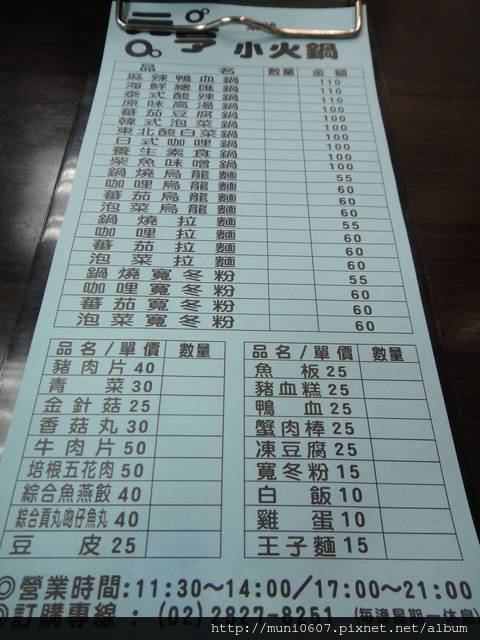 小火鍋
品名 數量 金額
麻辣鴨血鍋 110
海鮮總匯鍋 110
泰式酸辣鍋 110
原味高湯鍋 100
番茄豆腐鍋 100
韓式泡菜鍋 100
東北酸白菜鍋 100
日式咖哩鍋 100
養生素食鍋 100
柴魚味噌鍋 100
鍋燒烏龍麵 55
咖哩烏龍麵 60
番茄烏龍麵 60
泡菜烏龍麵 60
鍋燒拉麵 55
咖哩拉麵 60
番茄拉麵 60
泡菜拉麵 60
鍋燒寬冬粉 55
咖哩寬冬粉 60
番茄寬冬粉 60
泡菜寬冬粉 60
品名/單價 數量
豬肉片 40
青菜 30
金針菇 25
香菇丸 30
牛肉片 50
培根五花肉 50
綜合魚燕餃 40
綜合貢丸吻仔魚丸 40
豆皮 25
品名/單價 數量
魚板 25
豬血糕 25
鴨血 25
蟹肉棒 25
凍豆腐 25
寬冬粉 15
白飯 10
雞蛋 10
王子麵 15
◎營業時間:11:30～14:00/17:00～21:00
◎訂購專線:(02)2827-8251 (每逢星期一休息)
http://muni0607.pixnet.net/album